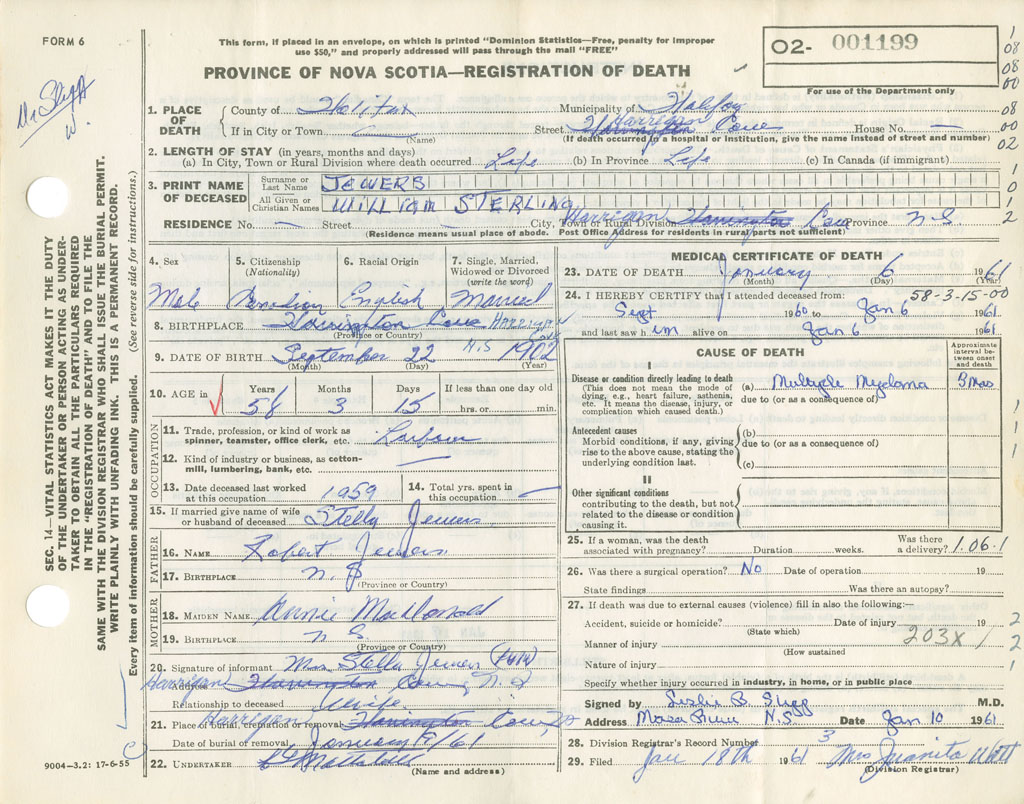 FORM 6
This form, if placed in an envelope, on which is printed "Dominion Statistics—Free, penalty for improper
use $50," and properly addressed will pass through the mail "FREE"
PROVINCE OF NOVA SCOTIA—REGISTRATION OF DEATH
O2- 001199
For use of the Department only
1
08
08
00
08
00
02
1. PLACE OF DEATH County of Halifax Municipality of Halifax
If in City or Town (Name) Street Harrigan Harrington Cove House No. —
(If death occurred in a hospital or institution, give the name instead of street and number)
2. LENGTH OF STAY (in years, months and days)
(a) In City, Town or Rural Division where death occurred Life (b) In Province Life (c) In Canada (if immigrant)
3. PRINT NAME OF DECEASED Surname or Last Name JEWERS
All Given or Christian Names WILLIAM STERLING
RESIDENCE No. — Street City, Town or Rural Division Harrigan Harrington Cove Province N S
(Residence means usual place of abode. Post Office Address for residents in rural parts not sufficient)
1
0
1
2
4. Sex Male
5. Citizenship (Nationality) Canadian
6. Racial Origin English
7. Single, Married, Widowed or Divorced (write the word) Married
8. BIRTHPLACE Harrington Cove HARRIGAN COVE N.S
(Province or Country)
9. DATE OF BIRTH September 22 1902
(Month) (Day) (Year)
10. AGE in Years 58 Months 3 Days 15 If less than one day old hrs. or min.
OCCUPATION
11. Trade, profession, or kind of work as spinner, teamster, office clerk, etc. Labour
12. Kind of industry or business, as cotton-mill, lumbering, bank, etc. —
13. Date deceased last worked at this occupation 1959
14. Total yrs. spent in this occupation —
15. If married give name of wife or husband of deceased Stella Jewers
FATHER
16. NAME Robert Jewers
17. BIRTHPLACE N. S
(Province or Country)
MOTHER
18. MAIDEN NAME Annie MacDonald
19. BIRTHPLACE N S
(Province or Country)
20. Signature of informant Mrs Stella Jewers
Address Harrigan Harrington Cove, N. S
Relationship to deceased Wife
21. Place of burial, cremation or removal Harrigan Harrington Cove
Date of burial or removal January 9/61
22. UNDERTAKER
(Name and address)
MEDICAL CERTIFICATE OF DEATH
23. DATE OF DEATH January 6 1961
(Month) (Day) (Year)
58-3-15-00
24. I HEREBY CERTIFY that I attended deceased from:
Sept 1960 to Jan 6 1961
and last saw h im alive on Jan 6 1961
CAUSE OF DEATH
Approximate interval between onset and death
I
Disease or condition directly leading to death (a) Multiple Myeloma 3 Mos
(This does not mean the mode of dying, e.g., heart failure, asthenia, etc. It means the disease, injury, or complication which caused death.)
due to (or as a consequence of)
Antecedent causes
Morbid conditions, if any, giving rise to the above cause, stating the underlying condition last.
(b)
due to (or as a consequence of)
(c)
II
Other significant conditions
contributing to the death, but not related to the disease or condition causing it.
1
1
1
25. If a woman, was the death associated with pregnancy? Duration weeks. Was there a delivery?
1.06.1
26. Was there a surgical operation? No Date of operation 19
State findings Was there an autopsy?
27. If death was due to external causes (violence) fill in also the following:—
Accident, suicide or homicide? Date of injury 19
(State which)
Manner of injury 203X
(How sustained)
Nature of injury
2
2
1
Specify whether injury occurred in industry, in home, or in public place
Signed by Leslie B. Slipp M.D.
Address N.S Date Jan 10 1961
28. Division Registrar's Record Number 3
29. Filed Jan 18th 1961 Mrs Juanita
(Division Registrar)
SEC. 14—VITAL STATISTICS ACT MAKES IT THE DUTY
OF THE UNDERTAKER OR PERSON ACTING AS UNDER-
TAKER TO OBTAIN ALL THE PARTICULARS REQUIRED
IN THE "REGISTRATION OF DEATH" AND TO FILE THE
SAME WITH THE DIVISION REGISTRAR WHO SHALL ISSUE THE BURIAL PERMIT.
WRITE PLAINLY WITH UNFADING INK. THIS IS A PERMANENT RECORD.
Every item of information should be carefully supplied. (See reverse side for instructions.)
9004—3.2: 17-6-55